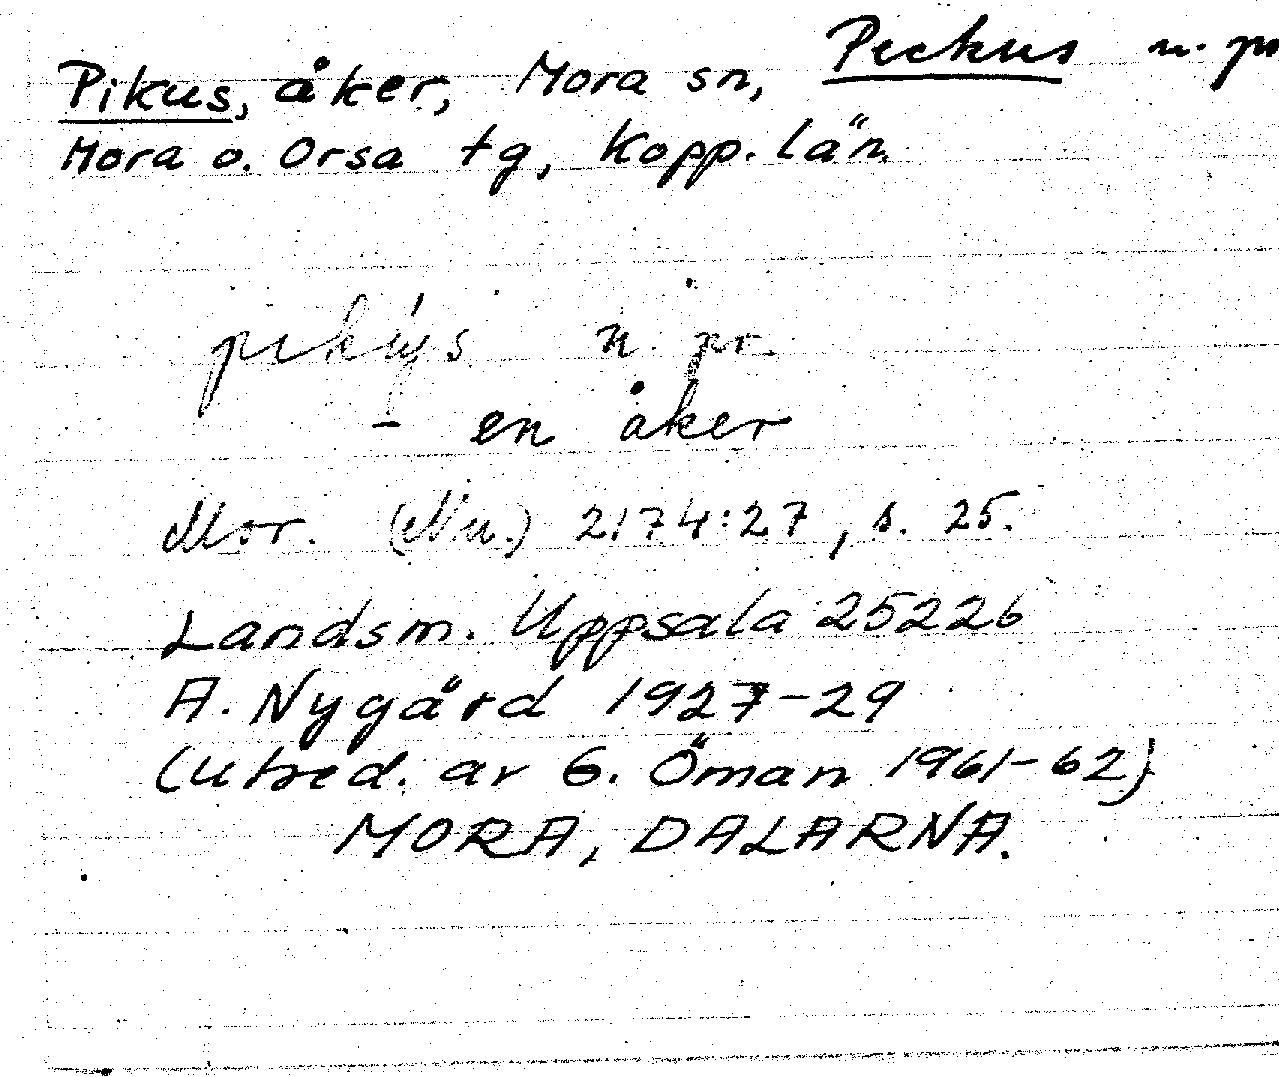 Pikus, åker, Mora sn, Peckus n. pr
Mora o. Orsa tg, Kopp. län
n. pr.
- en åker
Mor. (Nu.) 2174:27, s. 25.
Landsm. Uppsala 25226
A. Nygård 1927-29
(Utred. av G. Öman 1961-62)
MORA, DALARNA.